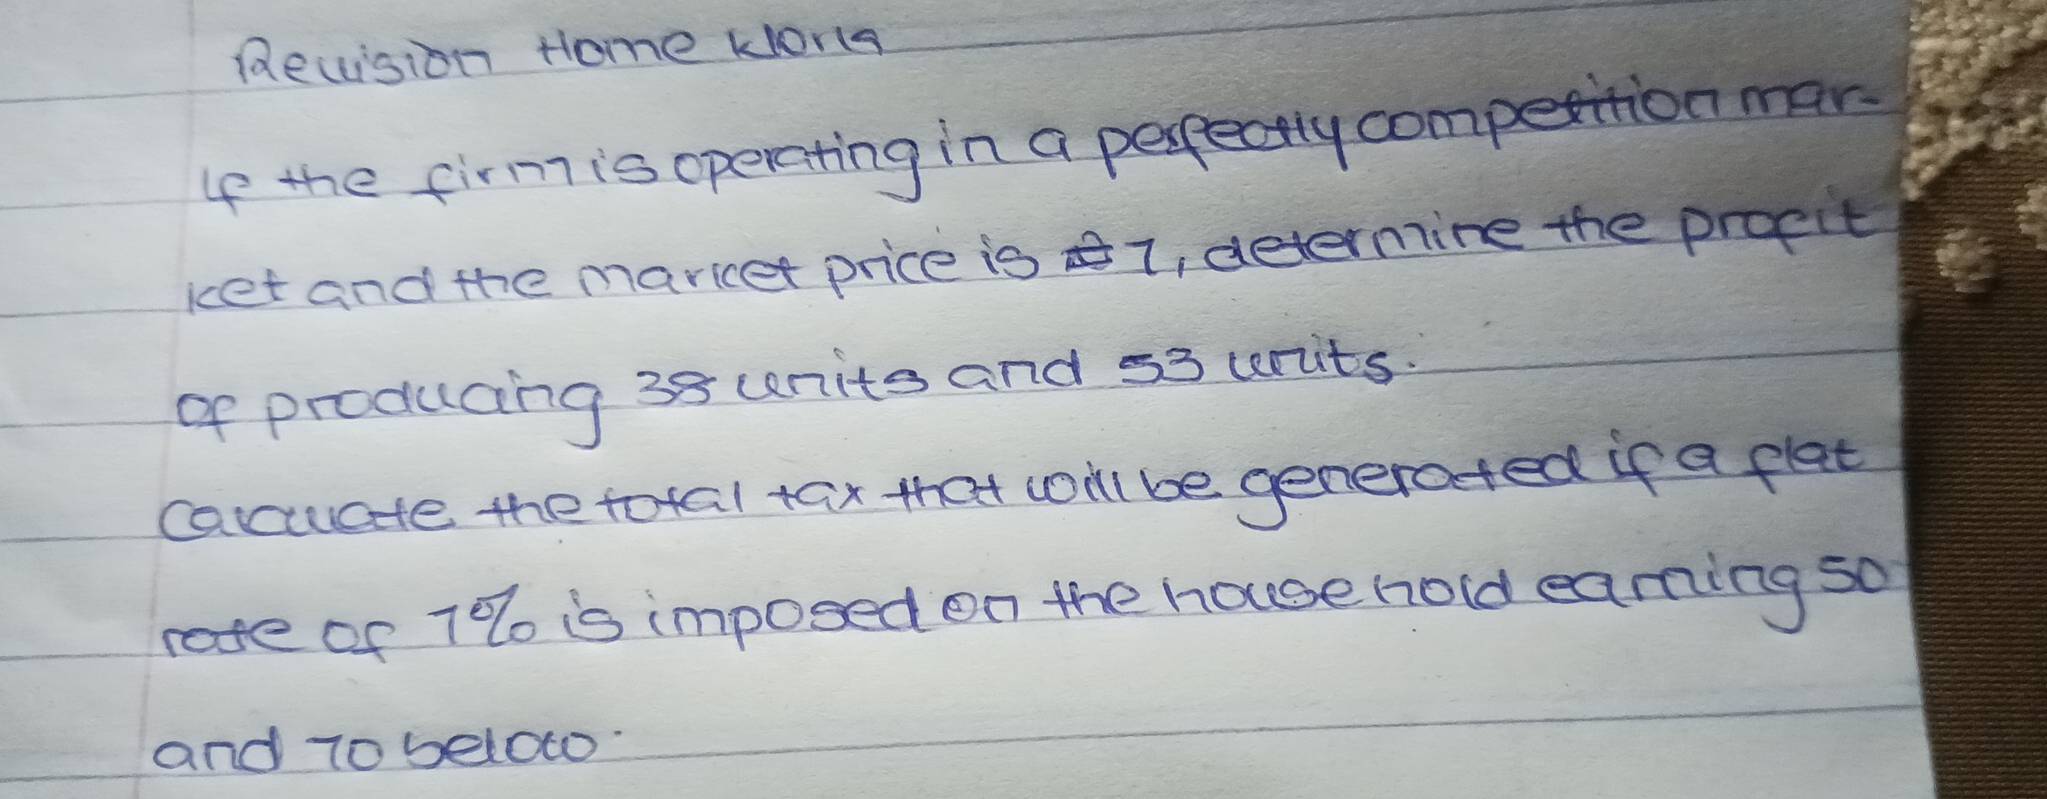 Revision Home Work
If the firm is operating in a perfectly competition mar-
ket and the market price is 7, determine the profit
of producing 38 units and 53 units.
Calculate the total tax that will be generated if a flat
rate of 7% is imposed on the house hold earning 50
and 70 below.